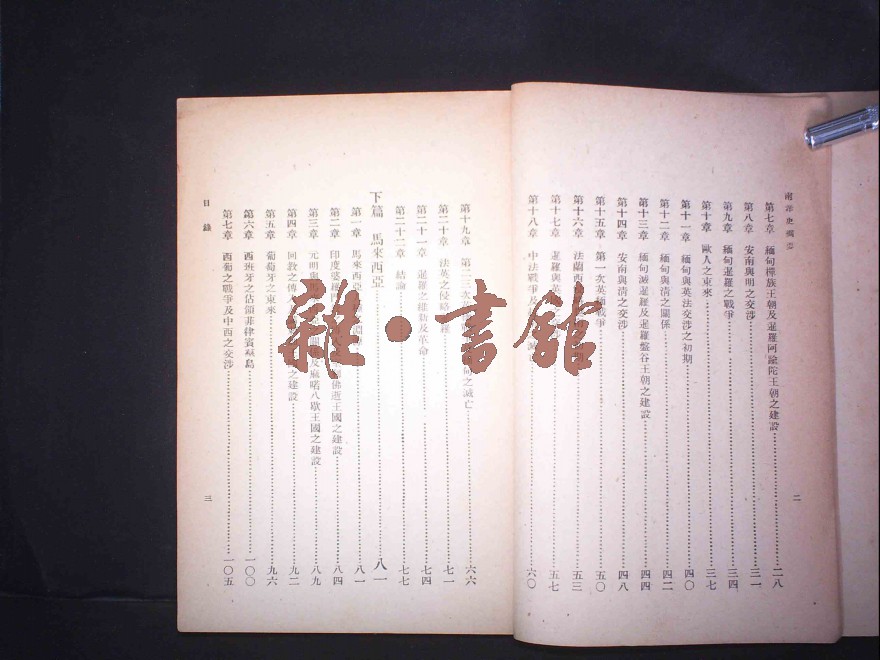 南洋史綱要
第七章 緬甸撣族王朝及暹羅阿踰陀王朝之建設 二八
第八章 安南與明之交涉 三一
第九章 緬甸暹羅之戰爭 三四
第十章 歐人之東來 三七
第十一章 緬甸與英法交涉之初期 四〇
第十二章 緬甸與清之關係 四二
第十三章 緬甸滅暹羅及暹羅盤谷王朝之建設 四四
第十四章 安南與清之交涉 四八
第十五章 第一次英緬戰爭 五〇
第十六章 法蘭西 五三
第十七章 暹羅與英 五七
第十八章 中法戰爭及 六〇
二
第十九章 第二三次 甸之滅亡 六六
第二十章 法英之侵略暹羅 七一
第二十一章 暹羅之維新及革命 七四
第二十二章 結論 七七
下篇 馬來西亞 八一
第一章 馬來西亞 八一
第二章 印度婆羅 佛逝王國之建設 八四
第三章 元明與 及麻喏八歇王國之建設 八九
第四章 回教之傳入 之建設 九二
第五章 葡萄牙之東來 九六
第六章 西班牙之佔領菲律賓羣島 一〇〇
第七章 西葡之戰爭及中西之交涉 一〇五
目錄
三
雜·書館